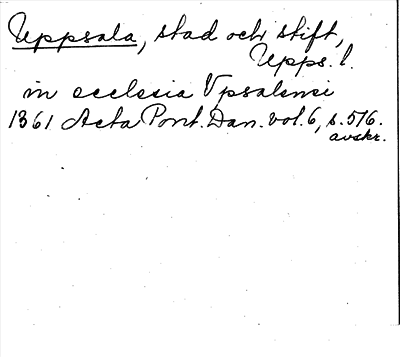 Uppsala, stad och stift,
Upps. l.
in ecclesia Vpsalensi
1361 Acta Pont. Dan. vol. 6, s. 516.
avskr.